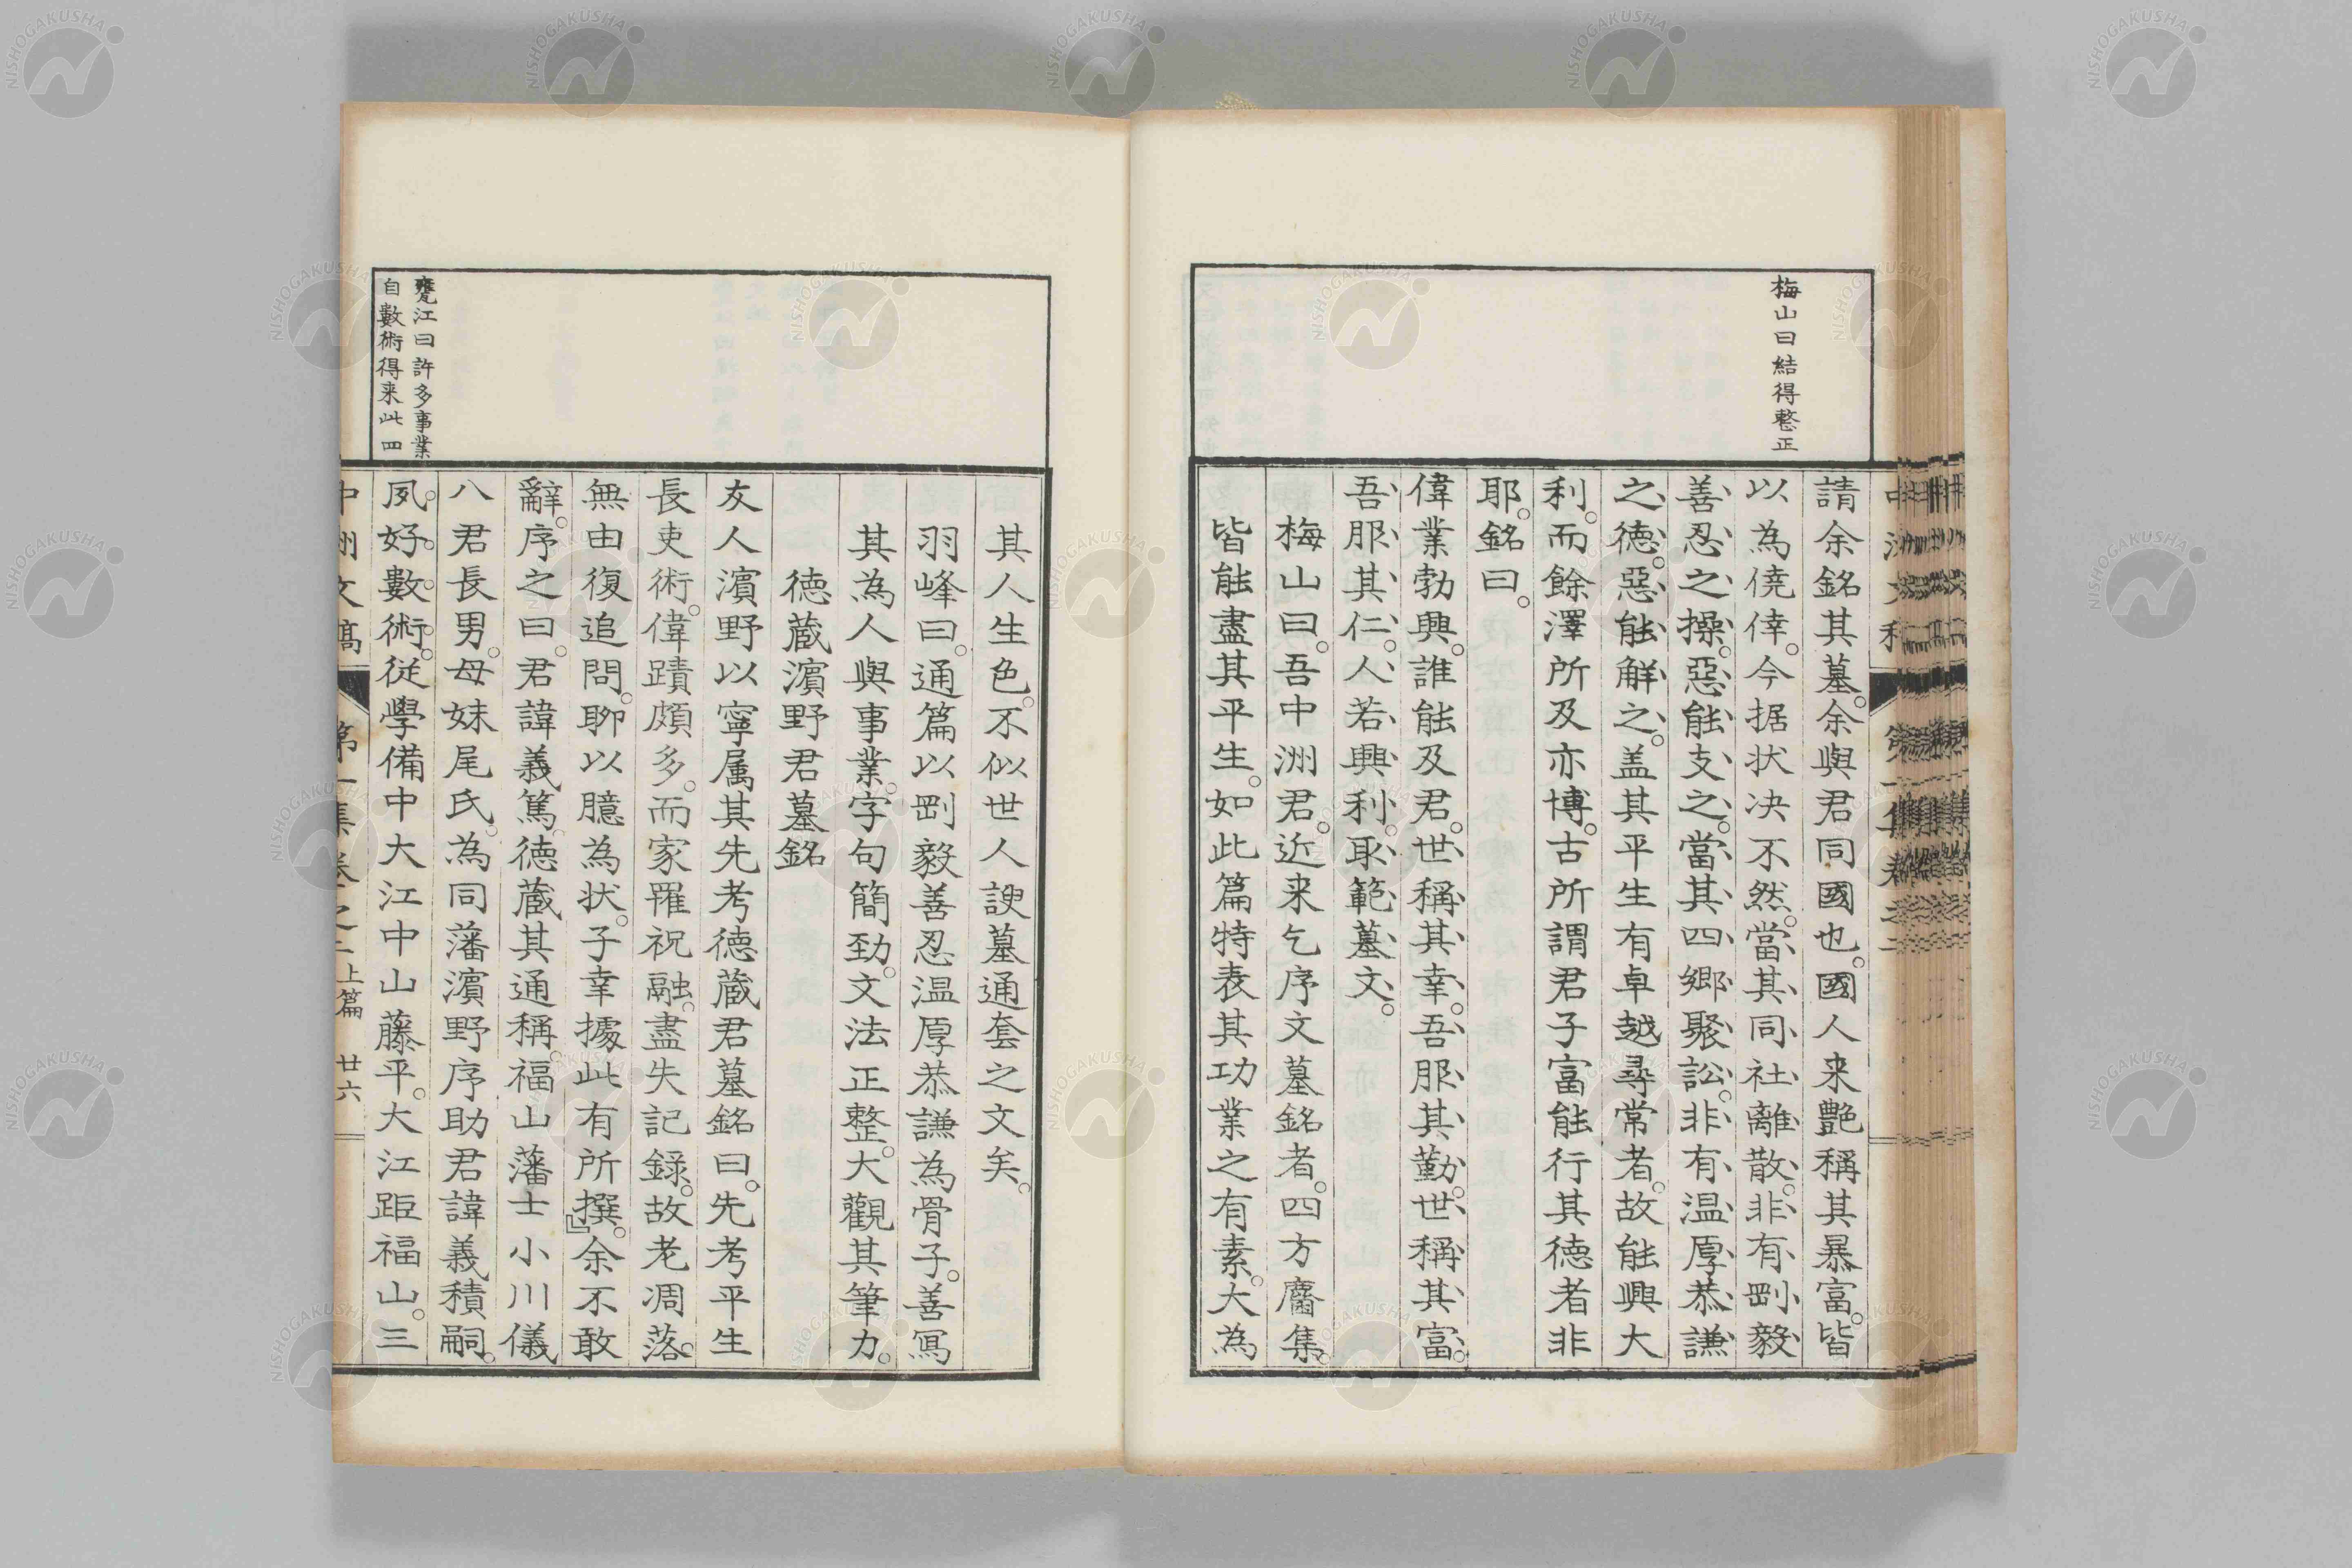 梅山曰結得整正
請余銘其墓。余與君同國也。國人来艶稱其暴富。皆
以為僥倖。今据状决不然。當其同社離散。非有剛毅
善忍之操。惡能支之。當其四郷聚訟。非有温厚恭謙
之德。惡能解之。盖其平生有卓越尋常者。故能興大
利。而餘澤所及亦博。古所謂君子富能行其德者非
耶。銘曰。
偉業勃興。誰能及君。世稱其幸。吾服其勤。世稱其富。
吾服其仁。人若興利。取範墓文。
梅山曰。吾中洲君。近来乞序文墓銘者。四方麕集。
皆能盡其平生。如此篇特表其功業之有素。大為
其人生色。不似世人諛墓通套之文矣。
羽峰曰。通篇以剛毅善忍温厚恭謙為骨子。善寫
其為人與事業。字句簡勁。文法正整。大觀其筆力。
徳蔵濵野君墓銘
友人濵野以寧属其先考徳蔵君墓銘曰。先考平生
長吏術。偉蹟頗多。而家罹祝融。盡失記録。故老凋落。
無由復追問。聊以臆為状。子幸據此有所撰。』余不敢
辭。序之曰。君諱義篤。徳蔵其通稱。福山藩士小川儀
八君長男。母妹尾氏。為同藩濵野序助君諱義積嗣。
夙好數術。従學備中大江中山藤平。大江距福山。三
甕江曰許多事業
自數術得来此四
中洲文稿 第一集卷之二上篇 廿六